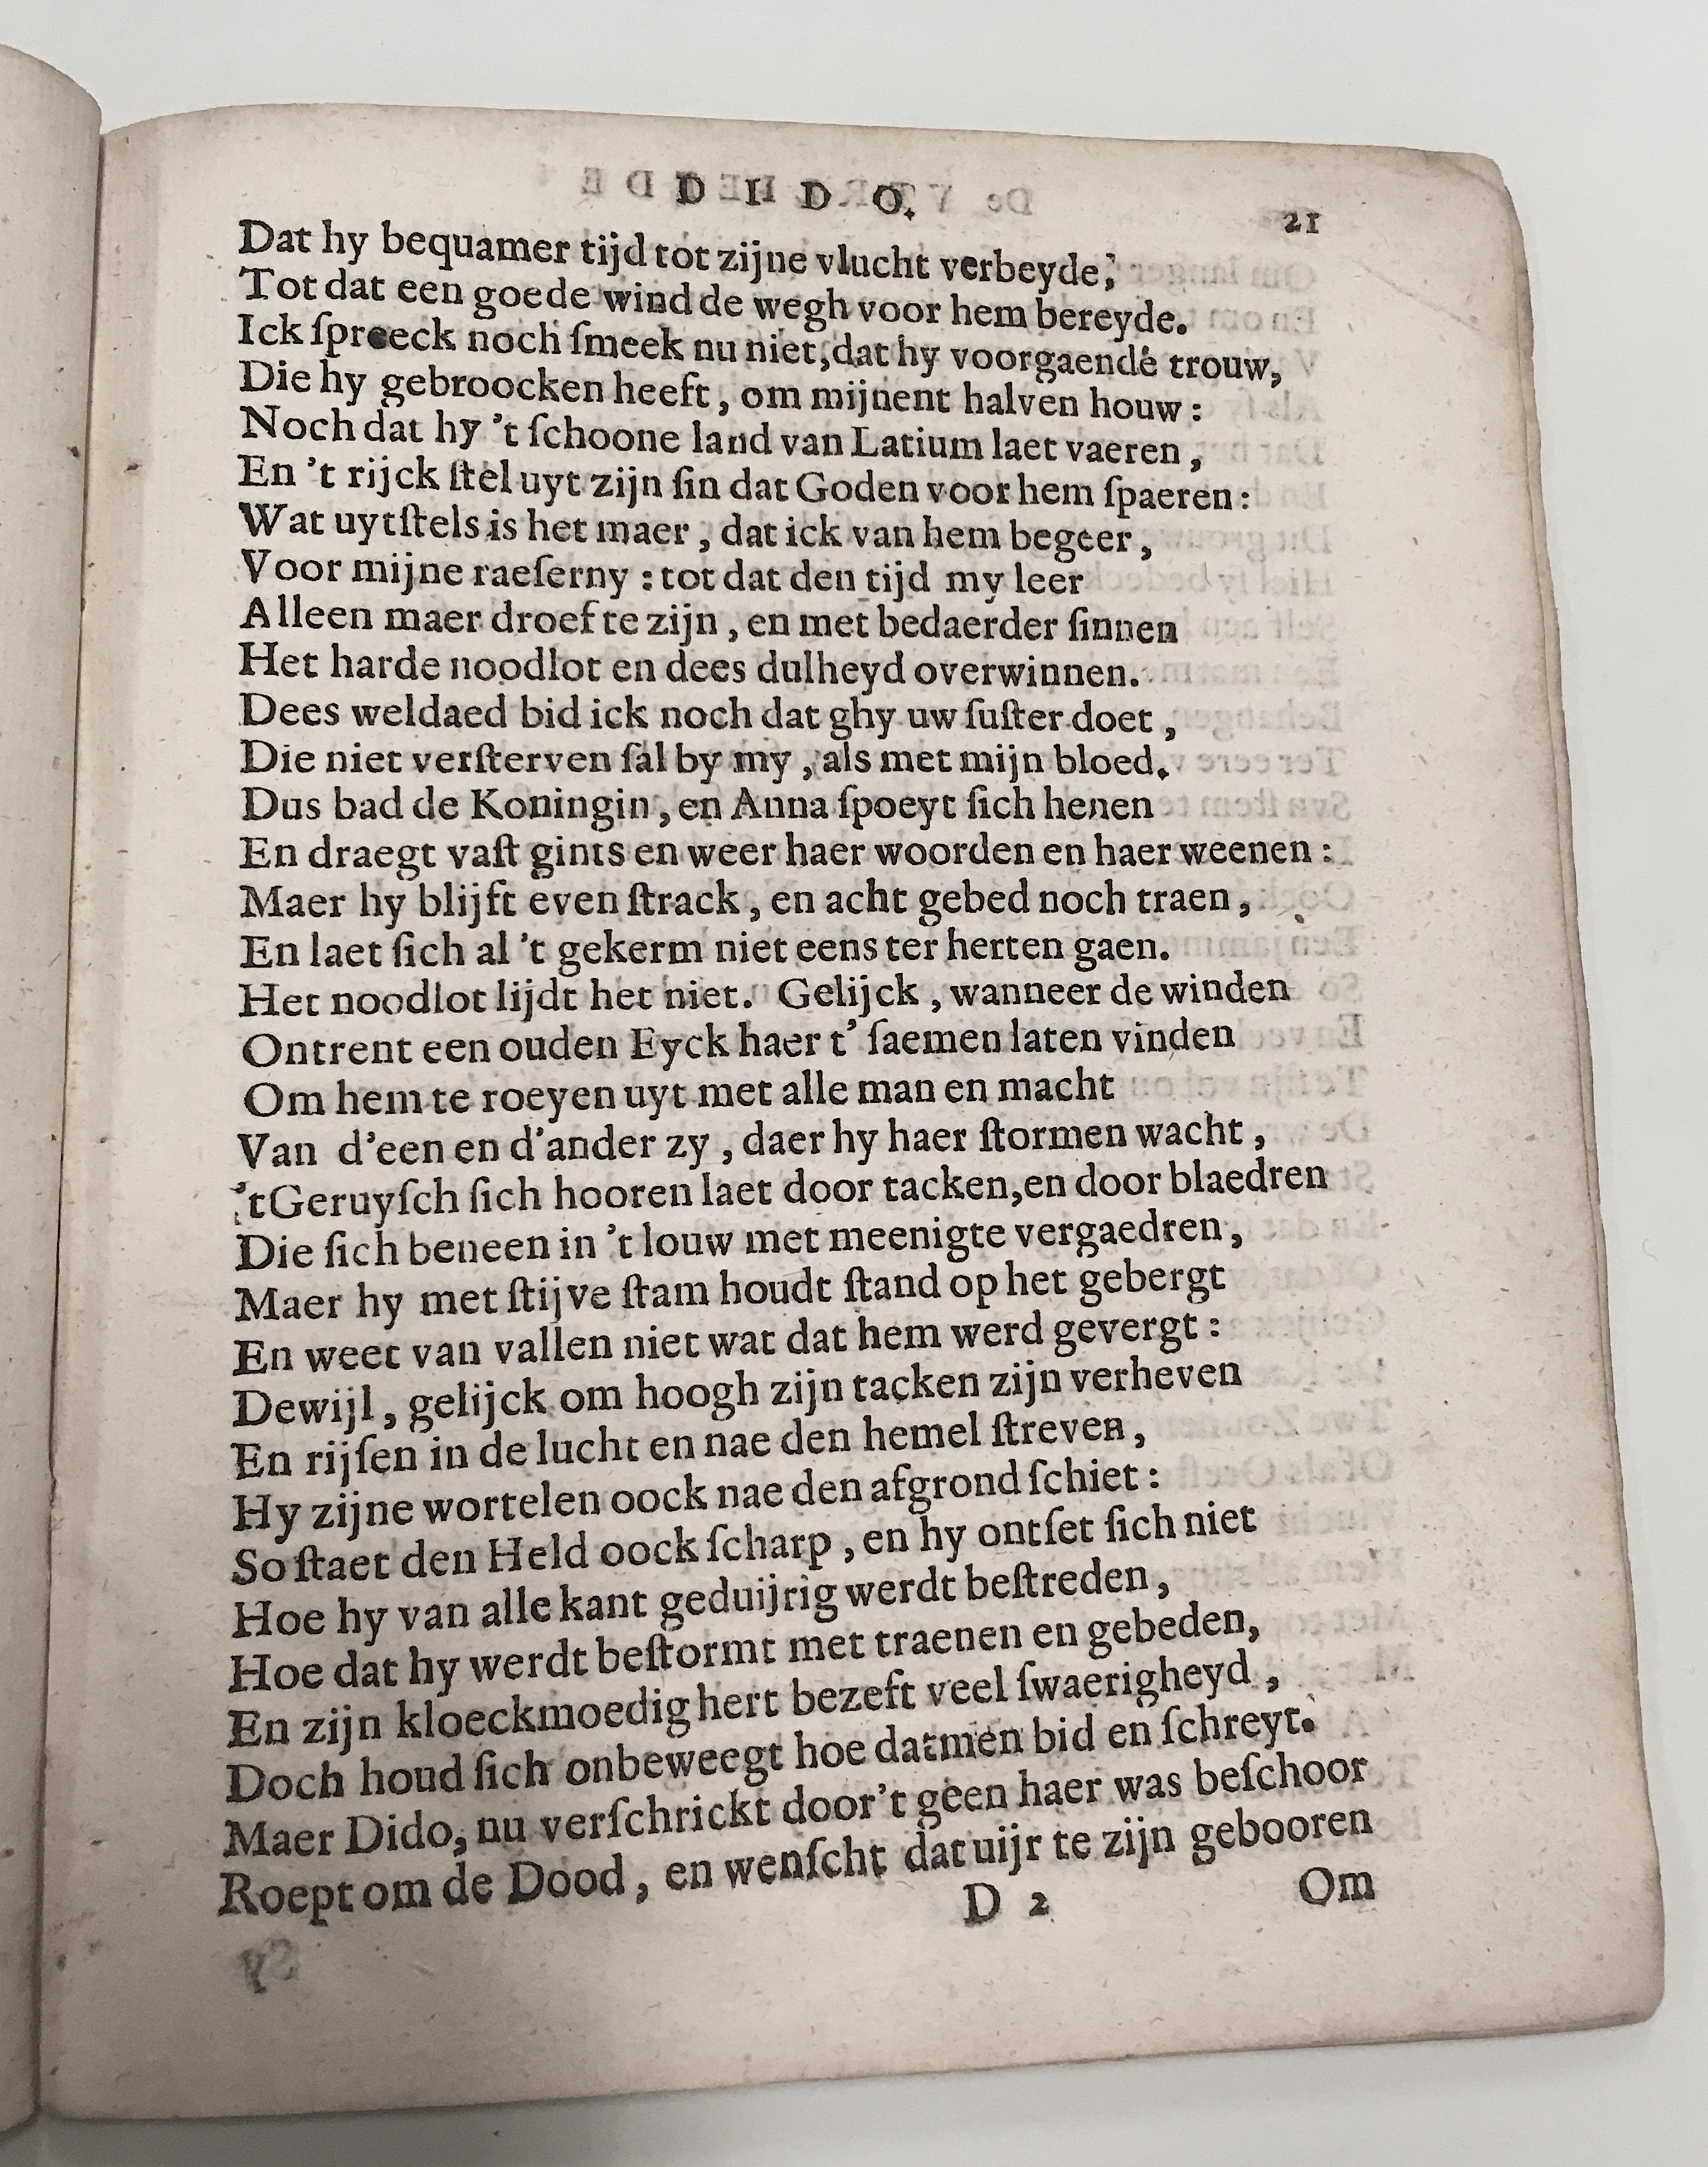 D I D O. 21
Dat hy bequamer tijd tot zijne vlucht verbeyde;
Tot dat een goede wind de wegh voor hem bereyde.
Ick ſpreeck noch ſmeek nu niet, dat hy voorgaende trouw,
Die hy gebroocken heeft, om mijnent halven houw:
Noch dat hy 't ſchoone land van Latium laet vaeren,
En 't rijck ſtel uyt zijn ſin dat Goden voor hem ſpaeren:
Wat uytſtels is het maer, dat ick van hem begeer,
Voor mijne raeſerny: tot dat den tijd my leer
Alleen maer droef te zijn, en met bedaerder ſinnen
Het harde noodlot en dees dulheyd overwinnen.
Dees weldaed bid ick noch dat ghy uw ſuſter doet,
Die niet verſterven ſal by my, als met mijn bloed.
Dus bad de Koningin, en Anna ſpoeyt ſich henen
En draegt vaſt gints en weer haer woorden en haer weenen:
Maer hy blijft even ſtrack, en acht gebed noch traen,
En laet ſich al 't gekerm niet eens ter herten gaen.
Het noodlot lijdt het niet. Gelijck, wanneer de winden
Ontrent een ouden Eyck haer t' ſaemen laten vinden
Om hem te roeyen uyt met alle man en macht
Van d'een en d'ander zy, daer hy haer ſtormen wacht,
't Geruyſch ſich hooren laet door tacken, en door blaedren
Die ſich beneen in 't louw met meenigte vergaedren,
Maer hy met ſtijve ſtam houdt ſtand op het gebergt
En weet van vallen niet wat dat hem werd gevergt:
Dewijl, gelijck om hoogh zijn tacken zijn verheven
En rijſen in de lucht en nae den hemel ſtreven,
Hy zijne wortelen oock nae den afgrond ſchiet:
So ſtaet den Held oock ſcharp, en hy ontſet ſich niet
Hoe hy van alle kant geduijrig werdt beſtreden,
Hoe dat hy werdt beſtormt met traenen en gebeden,
En zijn kloeckmoedig hert bezeft veel ſwaerigheyd,
Doch houd ſich onbeweegt hoe datmen bid en ſchreyt.
Maer Dido, nu verſchrickt door 't geen haer was beſchoor
Roept om de Dood, en wenſcht dat uijr te zijn gebooren
D 2 Om